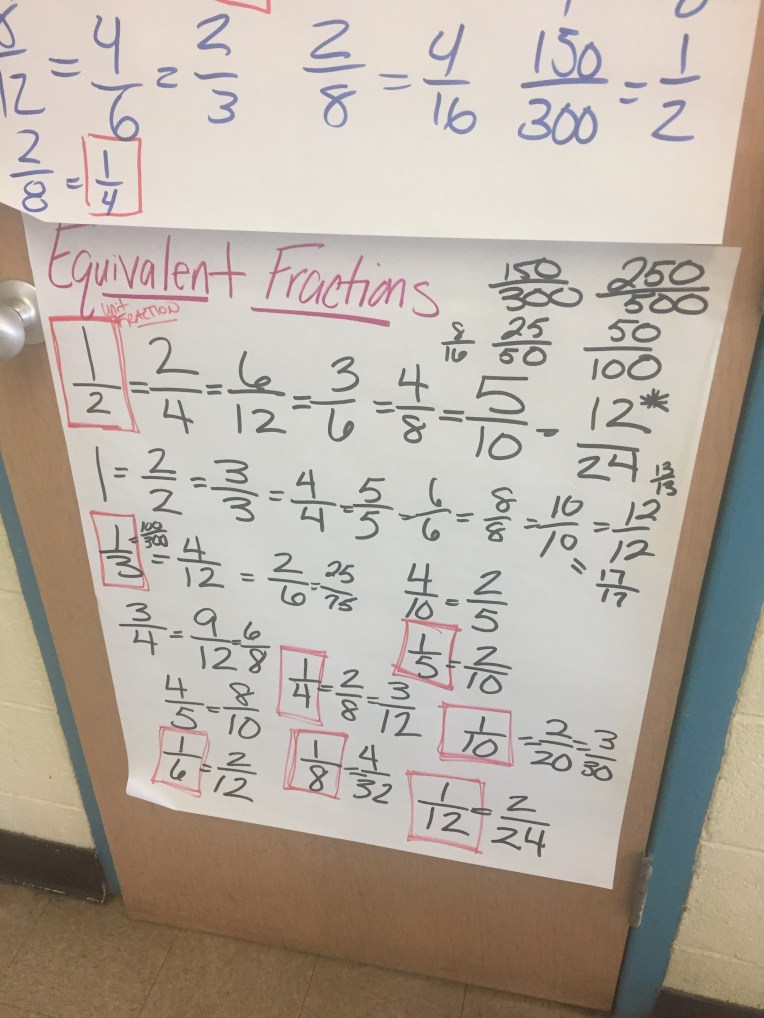 8/12 = 4/6 = 2/3   2/8 = 4/16   150/300 = 1/2
2/8 = 1/4
Equivalent Fractions   150/300   250/500
unit FRACTION   8/16   25/50   50/100
1/2 = 2/4 = 6/12 = 3/6 = 4/8 = 5/10 - 12/24 *
1 = 2/2 = 3/3 = 4/4 = 5/5 - 6/6 = 8/8 = 10/10 = 12/12   13/13
= 17/17
1/3 = 100/300 = 4/12 = 2/6 = 25/75   4/10 = 2/5
3/4 = 9/12 = 6/8   1/5 = 2/10
4/5 = 8/10   1/4 = 2/8 = 3/12   1/10 = 2/20 = 3/30
1/6 = 2/12   1/8 = 4/32   1/12 = 2/24